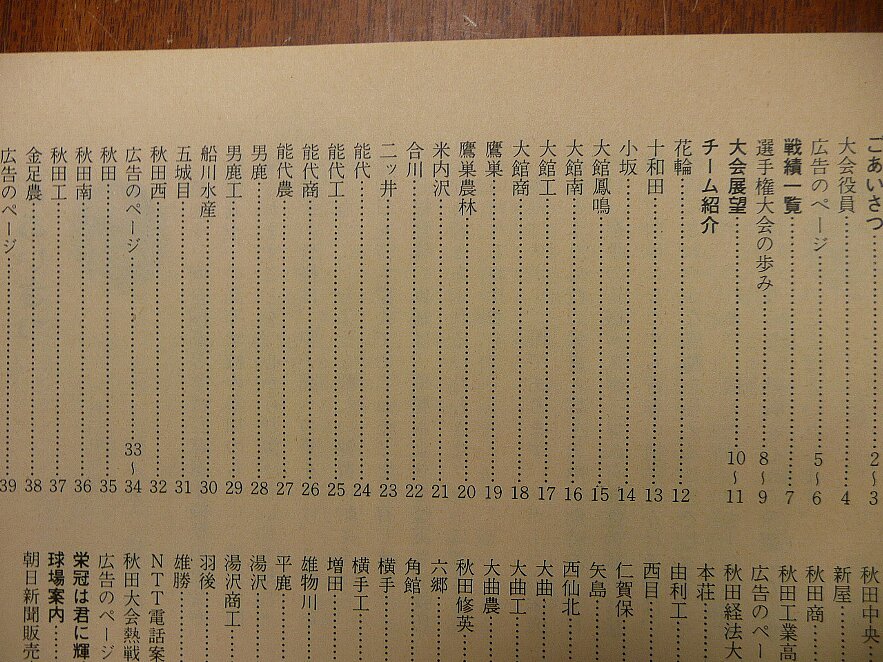 ごあいさつ……2～3
大会役員……4
広告のページ……5～6
戦績一覧……7
選手権大会の歩み……8～9
大会展望……10～11
チーム紹介
花輪……12
十和田……13
小坂……14
大館鳳鳴……15
大館南……16
大館工……17
大館商……18
鷹巣……19
鷹巣農林……20
米内沢……21
合川……22
二ッ井……23
能代……24
能代工……25
能代商……26
能代農……27
男鹿……28
男鹿工……29
船川水産……30
五城目……31
秋田西……32
広告のページ……33～34
秋田……35
秋田南……36
秋田工……37
金足農……38
広告のページ……39
秋田中央……
新屋……
秋田商……
秋田工業高
広告のペー
秋田経法大
本荘……
由利工……
西目……
仁賀保……
矢島……
西仙北……
大曲……
大曲工……
大曲農……
秋田修英……
六郷……
角館……
横手……
横手工……
増田……
雄物川……
平鹿……
湯沢……
湯沢商工……
羽後……
雄勝……
NTT電話案
秋田大会熱戦
広告のページ
栄冠は君に輝
球場案内……
朝日新聞販売